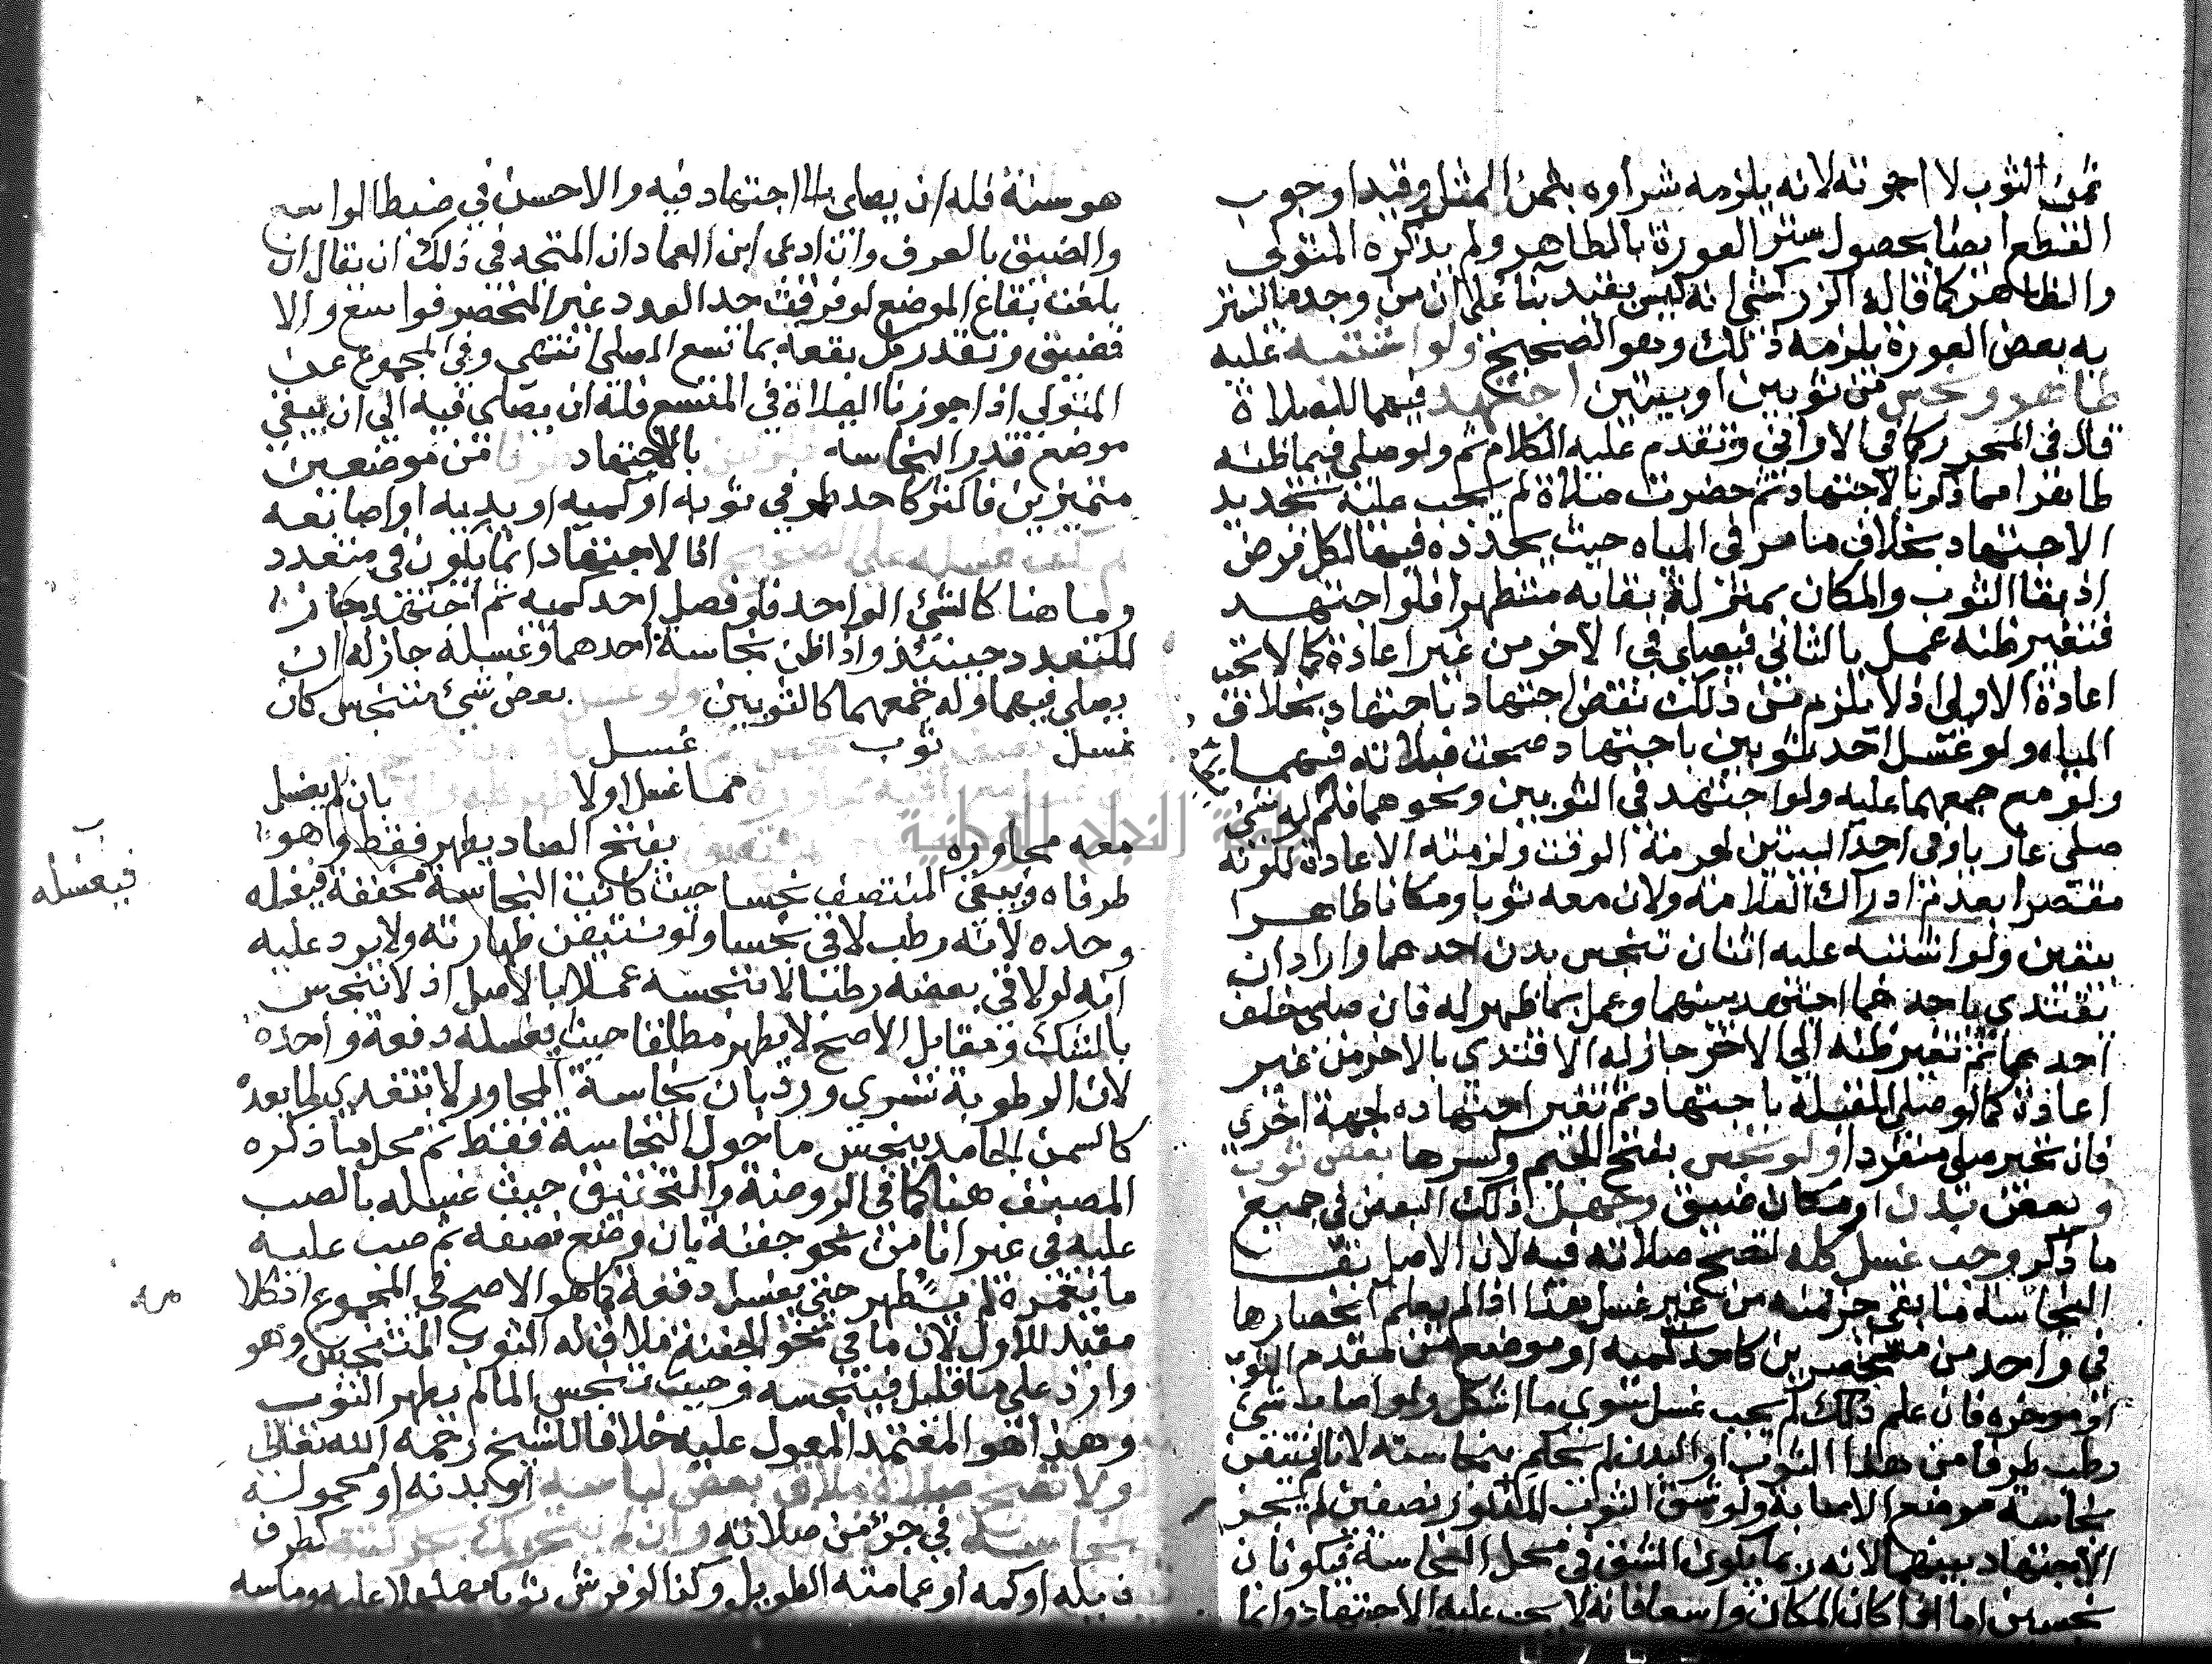 ثمن الثوب لا اجرته لانه يلزمه شراوه بثمن المثل وقيدا وجوب
القطع ايضا بحصول ستر العورة بالطاهر ولم يذكره المتولي
والظاهر كما قاله الزركشي انه ليس بقيد بنا على ان من وجد ما يستر
به بعض العورة يلزمه ذلك وهو الصحيح ولو اشتبه عليه
طاهر ونجس من ثوبين او بيتين اجتهد فيهما للصلاة
قال في المحرر كما في الاواني وتقدم عليه الكلام ثم ولو صلى فيما ظنه
طاهرا مما ذكر بالاجتهاد ثم حضرت صلاة لم يجب عليه تجديد
الاجتهاد بخلاف ما مر في المياه حيث يجدده فيها لكل فرض
اذ بقا الثوب والمكان بمنزلة بقايه متطهرا فلو اجتهد
فتغير ظنه عمل بالثاني فيصلي في الاخر من غير اعادة كما لا تجب
اعادة الاولى اذ لا يلزم من ذلك نقض اجتهاد باجتهاد بخلاف
المياه ولو غسل احد ثوبين باجتهاد صحت صلاته فيهما
ولو مع جمعهما عليه ولو اجتهد في الثوبين ونحوهما فلم يظهر له شي
صلى عاريا وفي احد البيتين لحرمة الوقت ولزمته الاعادة لكونه
مقصرا بعدم ادراك العلامة ولان معه ثوبا ومكانا طاهرا
بيقين ولو اشتبه عليه اثنان تنجس بدن احدهما واراد ان
يقتدي باحدهما اجتهد بينهما وعمل بما ظهر له فان صلى خلف
احدهما ثم تغير ظنه الى الاخر جاز له الاقتدي بالاخر من غير
اعادة كما لو صلى للقبلة باجتهاد ثم تغير اجتهاده لجهة اخرى
فان تحير صلى منفردا ولو نجس بفتح الجيم وكسرها بعض ثوب
وبعض بدن او مكان ضيق وجهل ذلك البعض في جميع
ما ذكر وجب غسل كله لتصح صلاته فيه لان الاصل بقا
النجاسة ما بقي جز منه من غير غسل هذا اذا لم يعلم انحصارها
في واحد من منحصرين كاحد كميه او موضع من مقدم الثوب
او موخره فان علم ذلك لم يجب غسل سوى ما اشكل ولو اصاب شي
رطب طرفا من هذا الثوب او البدن لم يحكم بنجاسته لانا لم نتيقن
نجاسة موضع الاصابة ولو شق الثوب المذكور نصفين لم يجز
الاجتهاد بينهما لانه ربما يكون الشق في محل النجاسة فيكونان
نجسين اما اذا كان المكان واسعا فانه لا يجب عليه الاجتهاد وانما
هو سنة فله ان يصلي بلا اجتهاد فيه والاحسن في ضبط الواسع
والضيق بالعرف وان ادعى ابن العماد ان المتجه في ذلك ان يقال ان
بلغت بقاع الموضع لو فرقت حد العدد غير المنحصر فواسع والا
فضيق وتقدر كل بقعة بما تسع المصلي انتهى وفي المجموع عن
المتولي اذا جوزنا الصلاة في المتسع فله ان يصلي فيه الى ان يبقى
موضع قدر النجاسه بالاجتهاد من موضعين
متميزين فاكثر كاحد طرفي ثوبه او كميه او يديه او اصابعه
اذا لاجتهاد انما يكون في متعدد
وما هنا كالشي الواحد فلو فصل احد كميه ثم اجتهد جاز
للتعدد حينئذ واذا ظن نجاسة احدهما وغسله جاز له ان
يصلي فيهما وله جمعهما كالثوبين ولو غسل بعض شي متنجس كان
غسل ثوب غسل
مما غسل اولا بان لم يغسل
معه مجاوره بفتح الصاد يطهر فقط وهو
طرفاه ويبقى المنتصف نجسا حيث كانت النجاسة محققة فيغسله
وحده لانه رطب لاقى نجسا ولو تيقن طهارته ولا يرد عليه
انه لو لاقى بعضه رطبا لا ينجسه عملا بالاصل اذ لا تنجس
بالشك ومقابل الاصح لا يطهر مطلقا حيث يغسله دفعة واحده
لان الرطوبة تسري ورد بان نجاسة المجاور لا تتعدى لما بعده
كالسمن الجامد ينجس ما حول النجاسة فقط ثم محل ما ذكره
المصنف هنا كما في الروضة والتحقيق حيث غسله بالصب
عليه في غير انا من نحو جفنة بان وضع نصفه ثم صب عليه
ما يغمره لم يطهر حتى يغسل دفعة كما هو الاصح في المجموع
مقيد للاول لان ما في نحو الجفنة ملاق له الثوب المتنجس وهو
وارد على ما قليل فينجسه وحيث تنجس الما لم يطهر الثوب
وهذا هو المعتمد المعول عليه خلافا للشيخ رحمه الله تعالى
ولا تصح صلاة ملاق بعض لباسه او بدنه او محموله
نجاسة في جز من صلاته وان لم يتحرك بحركته كطرف
ذيله او كمه او عمامته الطويل وكذا لو فرش ثوبا مهلهلا عليه وماسه
فيغسله
جامعة النجاح الوطنية